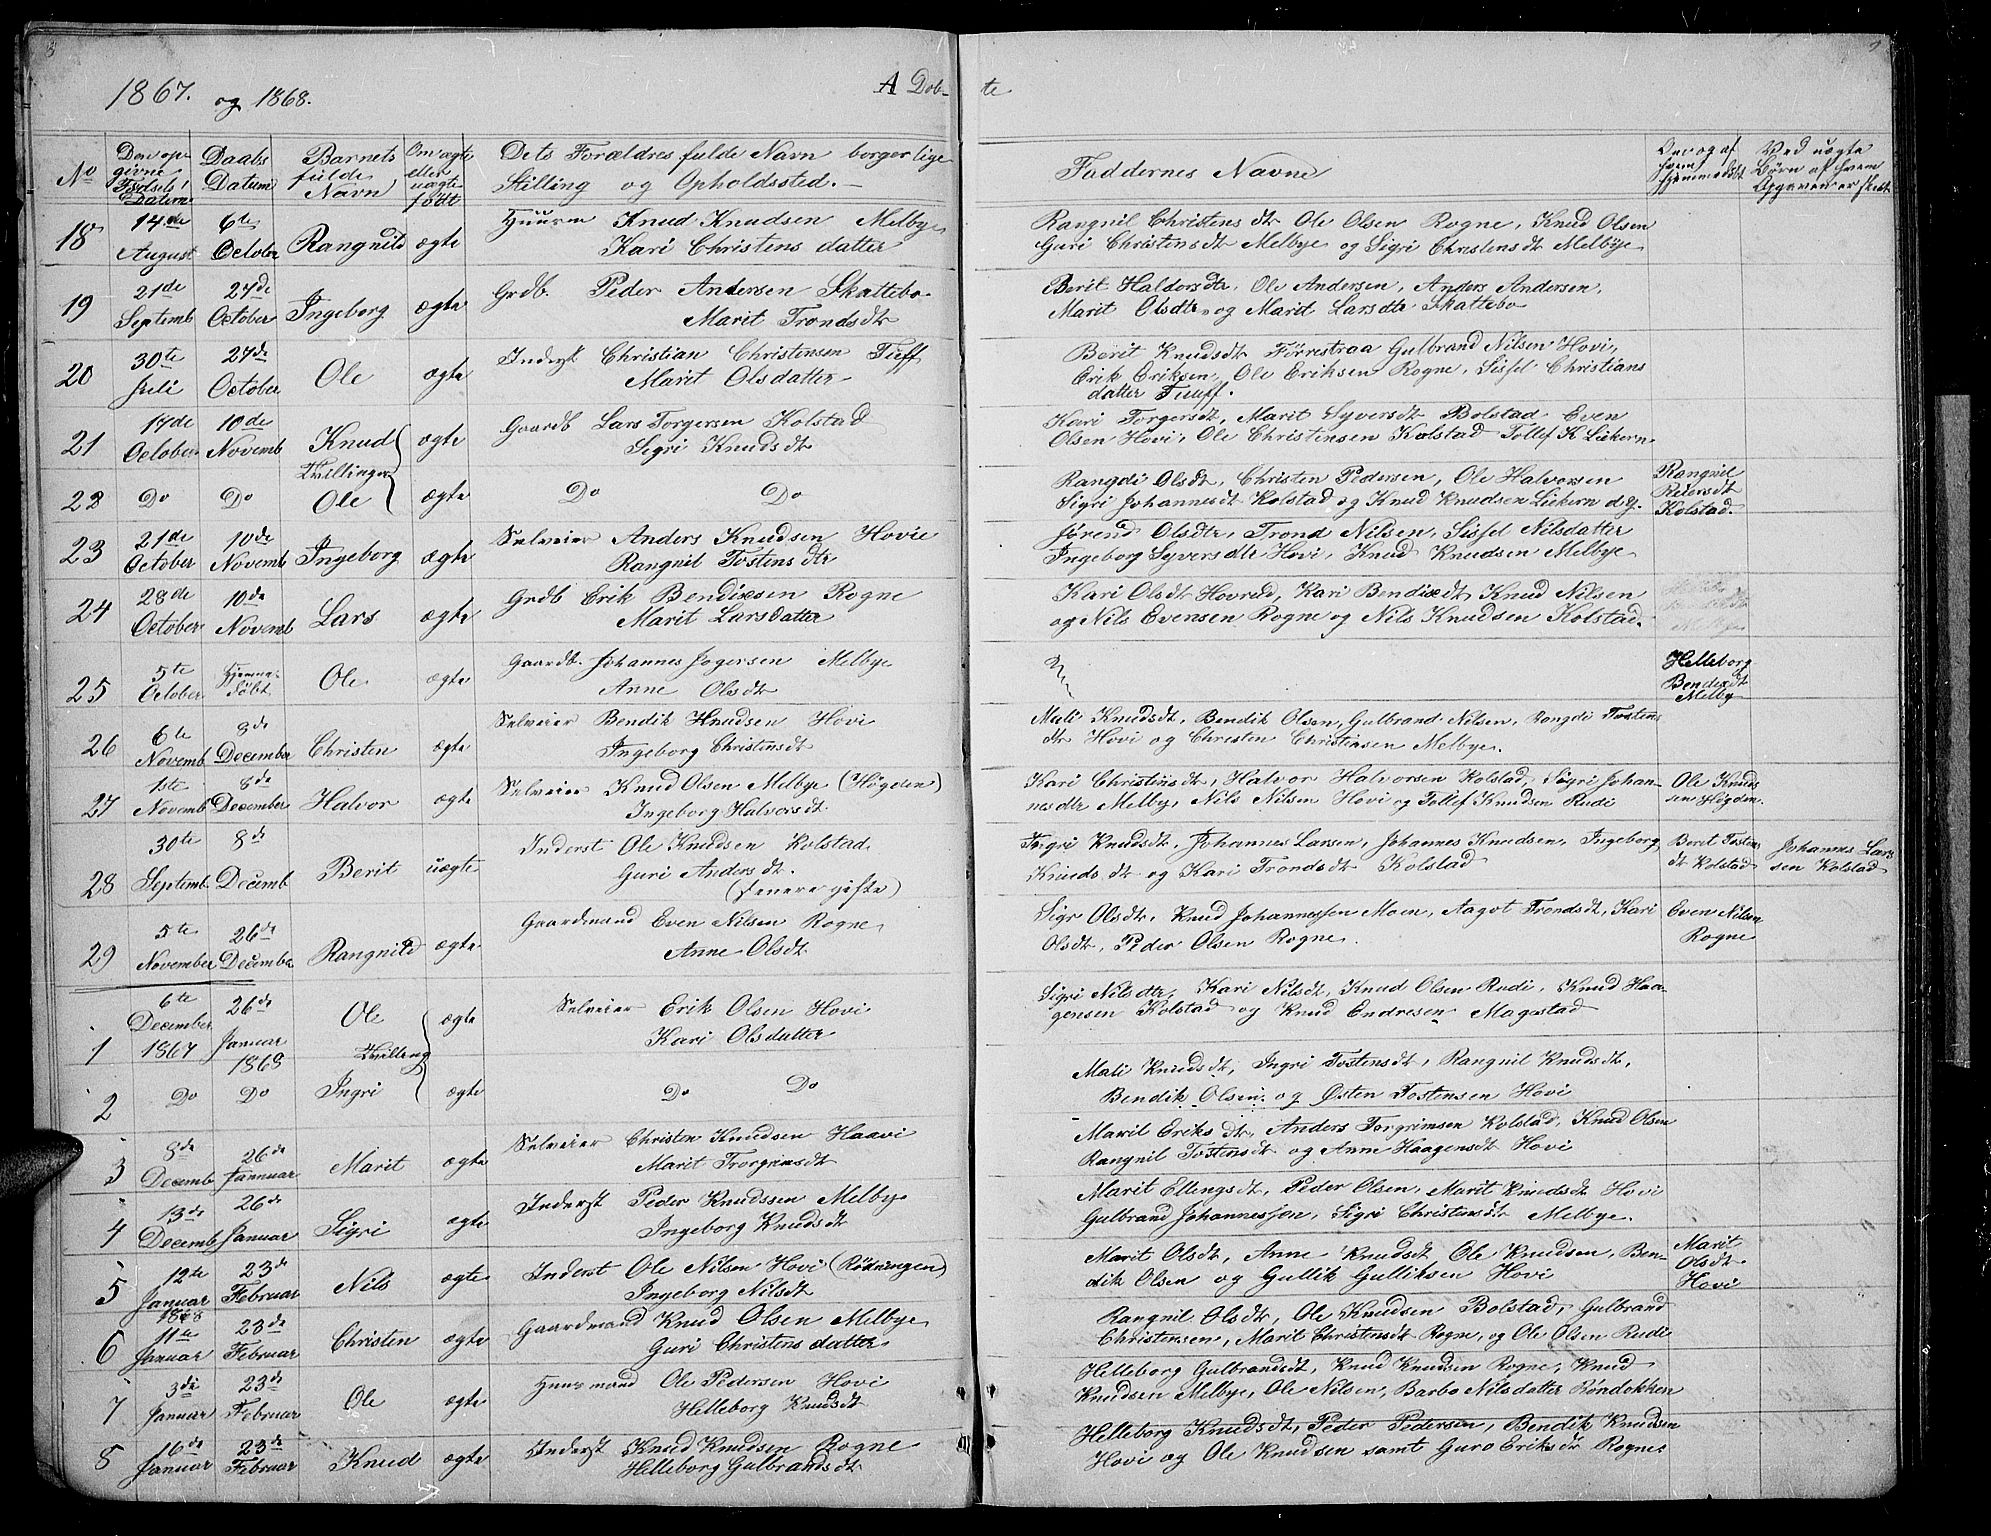 1867. og 1868. A Døb- te
No Den opgivne Fødsels Datum Daabs Datum Barnets fulde Navn Om ægte eller uægte født Dets Forældres fulde Navn borgerlige Stilling og Opholdssted. Faddernes Navne Om og af hvem hjemmedøbt Ved uægte Børn af hvem Opgaven er skeet
18 14de August 6te October Rangnild ægte Huusm Knud Knudsen Melbye
Kari Christens datter
Rangnil Christens dt Ole Olsen Rogne, Knud Olsen
Guri Christensdt Melbye og Sigri Christensdt Melbye
19 21de Septemb 27de October Ingeborg ægte Grdb. Peder Andersen Skattebo
Marit Trondsdt
Berit Haldorsdtr, Ole Andersen, Anders Andersen,
Marit Olsdtr og Marit Larsdtr Skattebo
20 30te Juli 27de October Ole ægte Inderst Christian Christensen Tuff
Marit Olsdatter
Berit Knudsdt Førrestraa Gulbrand Nilsen Hovi,
Erik Eriksen, Ole Eriksen Rogne, Sissel Christians
datter Tuuff.
21 14de October 10de Novemb Knud ægte Gaardb Lars Torgersen Kolstad
Sigri Knudsdt
Tvillinger
Kari Torgersdt, Marit Syversdt Bolstad Even
Olsen Hovi, Ole Christensen Kolstad Tollef K Liekern
22 Do Do Ole ægte Do Do
Rangdi Olsdt, Christen Pedersen, Ole Halvorsen
Sigri Johannesdt Kolstad og Knud Knudsen Liekern d.y.
Rangnil Reiersdt Kolstad.
23 21de October 10de Novemb Ingeborg ægte Selveier Anders Knudsen Hovie
Rangnil Tostensdtr
Jørend Olsdtr, Trond Nilsen, Sissel Nilsdatter
Ingeborg Syversdtr Hovi, Knud Knudsen Melbye
24 28de October 10de Novemb Lars ægte Grdb Erik Bendixsen Rogne
Marit Larsdatter
Kari Olsdt Hovrud, Kari Bendixdt, Knud Nilsen
og Nils Evensen Rogne og Nils Knudsen Kolstad.
25 5te October Hjemmedøbt Ole ægte Gaardb. Johannes Jogersen Melbye
Anne Olsdt
Helleborg Bendixdt Melby
26 6te Novemb 8de December Christen ægte Selveier Bendik Knudsen Hovi
Ingeborg Christensdt
Mali Knudsdt, Bendik Olsen, Gulbrand Nilsen, Rangdi Tostens
dt Hovi og Christen Christiansen Melbye.
27 1ste Novemb 8de December Halvor ægte Selveier Knud Olsen Melbye (Høgden)
Ingeborg Halvorsdt
Kari Christensdt, Halvor Halvorsen Kolstad, Sigri Johan-
nesdtr Melby, Nils Nilsen Hovi og Tollef Knudsen Rudi
Ole Knudsen Høgden.
28 30te Septemb 8de Decemb Berit uægte Inderst Ole Knudsen Kolstad
Guri Andersdt.
(senere gifte)
Ingri Knudsdt, Johannes Larsen, Johannes Knudsen, Ingeborg
Knudsdt og Kari Trondsdt Kolstad
Berit Tostensdt Kolstad Johannes Larsen Kolstad
29 5te November 26de Decembe Rangnild ægte Gaardmand Even Nilsen Rogne
Anne Olsdt
Sigr Olsdt, Knud Johannessen Moen, Aagot Trondsdt, Kari
Olsdt, Peder Olsen Rogne.
Even Nilsen Rogne
1 6te December 1867 26de Januar 1868 Ole ægte Selveier Erik Olsen Hovi
Kari Olsdatter
Tvilling
Sigri Nilsdtr, Kari Nilsdt, Knud Olsen Rudi, Knud Haa-
gensen Kolstad og Knud Endresen Magestad
2 Do Do Ingri ægte Do Do
Mali Knudsdt, Ingri Tostensdt, Rangnil Knudsdt,
Bendik Olsen og Østen Tostensen Hovi
3 8de Decemb 26de Jannuar Marit ægte Selveier Christen Knudsen Haavi
Marit Trorgrimsdt
Maril Eriksdt, Anders Torgrimsen Kolstad, Knud Olsen
Rangnil Tostensdt og Anne Haagensdt Hovi
4 13de Decemb 26de Januar Sigri ægte Inderst Peder Knudssen Melbye
Ingeborg Knudsdt
Marit Ellingsdt, Peder Olsen, Marit Knudsdt Hovi
Gulbrand Johannessen, Sigri Christensdt Melbye.
5 12te Januar 1868 23de Februar Nils ægte Inderst Ole Nilsen Hovi (Rødningen)
Ingeborg Nilsdt
Marit Olsdt, Anne Knudsdt Ole Knudsen, Ben-
dik Olsen og Gullik Gulliksen Hovi
Marit Olsdt Hovi
6 11te Januar 23de Februar Christen ægte Gaardmand Knud Olsen Melbye
Guri Christens datter
Rangnil Olsdt, Ole Knudsen Bolstad, Gulbrand
Christensen, Marit Christensdt Rogne, og Ole Olsen Rudi
7 3de Januar 23de Februar Ole ægte Huusmand Ole Pedersen Hovi
Helleborg Knudsdt
Helleborg Gulbrandsdt, Knud Knudsen Rogne, Knud
Knudsen Melbye, Ole Nilsen, Barbo Nilsdatter Røndokken
8 16de Januar 23de Februar Knud ægte Inderst Knud Knudsen Rogne
Helleborg Gulbrandsdt
Helleborg Knudsdt, Peder Pedersen, Bendik Knudsen
Hovi og Ole Knudsen samt Guro Eriksdt Rogne